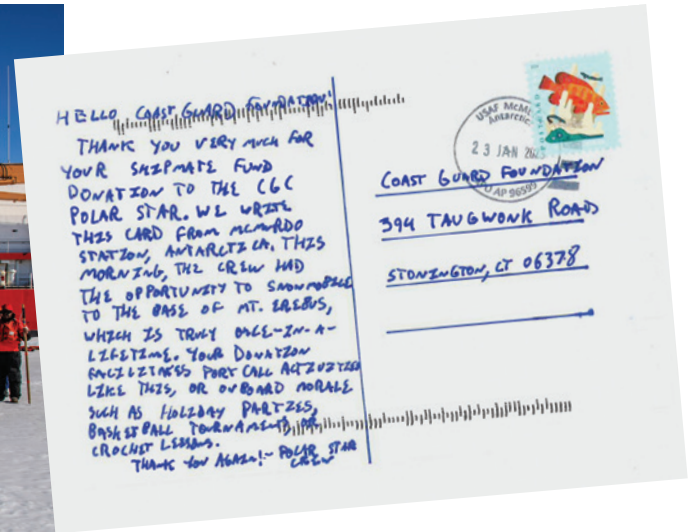 HELLO COAST GUARD FOUNDATION!
THANK YOU VERY MUCH FOR
YOUR SHIPMATE FUND
DONATION TO THE CGC
POLAR STAR. WE WRITE
THIS CARD FROM MCMURDO
STATION, ANTARCTICA. THIS
MORNING, THE CREW HAD
THE OPPORTUNITY TO SNOWMOBILE
TO THE BASE OF MT. EREBUS,
WHICH IS TRULY ONCE-IN-A-
LIFETIME. YOUR DONATION
FACILITATES PORT CALL ACTIVITIES
LIKE THIS, OR ONBOARD MORALE
SUCH AS HOLIDAY PARTIES,
BASKETBALL TOURNAMENTS, OR
CROCHET LESSONS.
THANK YOU AGAIN! - POLAR STAR
CREW
USAF MCM
Antarctic
23 JAN 202
AP 96599
POSTCARD
COAST GUARD FOUNDATION
394 TAUGWONK ROAD
STONINGTON, CT 06378